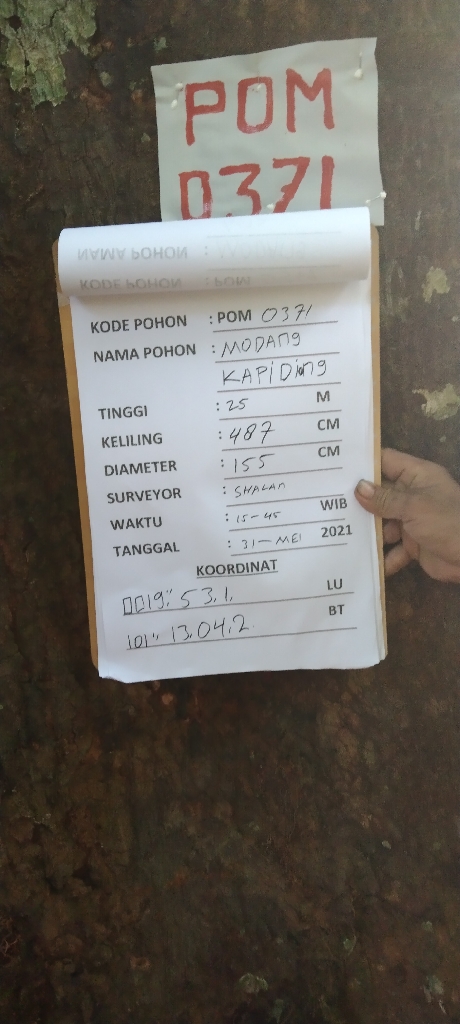 POM
0371
NAMA POHON :
KODE POHON : POM
KODE POHON : POM 0371
NAMA POHON : MODANG
KAPIDING
TINGGI : 25 M
KELILING : 487 CM
DIAMETER : 155 CM
SURVEYOR :
WAKTU : 15-45 WIB
TANGGAL : 31-MEI 2021
KOORDINAT
0019" 53.1. LU
101" 13.04.2. BT